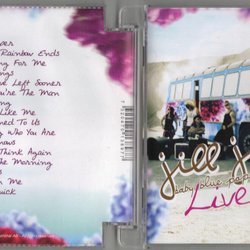 Rainbow Ends
ng For Me
ngs
e Left Sooner
u're The Man
Like Me
ned To Us
g Who You Are
nows
Think Again
The Morning
n Me
jill j
baby blue
Live